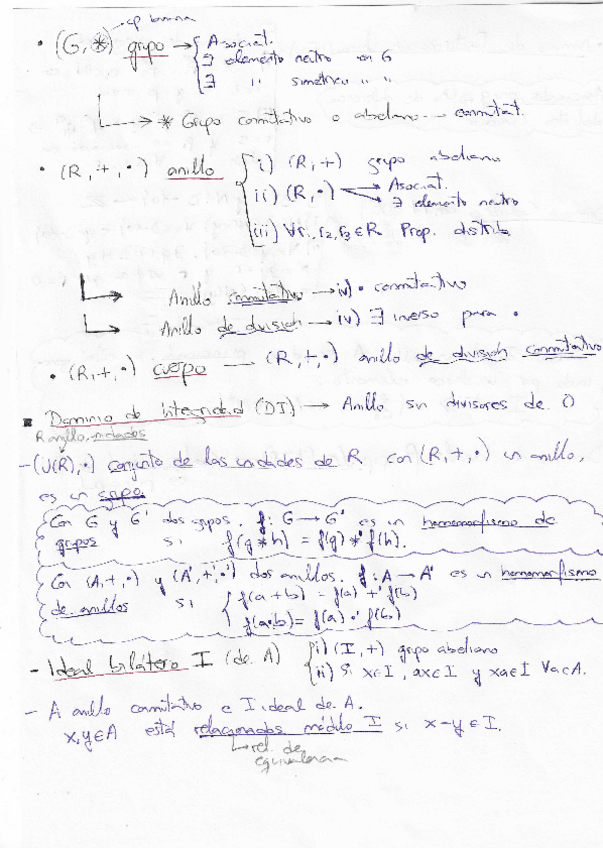 op binaria
• (G, *) grupo → { Asociat.
∃ elemento neutro en G
∃ " simetrico " "
→ * Grupo conmutativo o abeliano — conmutat.
• (R, +, •) anillo { i) (R, +) grupo abeliano
ii) (R, •) → Asociat.
→ ∃ elemento neutro
iii) ∀r₁, r₂, r₃ ∈ R Prop. distrib
→ Anillo conmutativo → iv) • conmutativo
→ Anillo de división → iv) ∃ inverso para •
• (R, +, •) cuerpo — (R, +, •) anillo de división conmutativo
▪ Dominio de integridad (DI) → Anillo sin divisores de 0
R anillo, unidades
– (U(R), •) conjunto de las unidades de R con (R, +, •) un anillo,
es un grupo
Con G y G' dos grupos. f: G → G' es un homomorfismo de
grupos si f(g * h) = f(g) *' f(h).
Con (A, +, •) y (A', +', •') dos anillos. f: A → A' es un homomorfismo
de anillos si { f(a + b) = f(a) +' f(b)
f(a•b) = f(a) •' f(b)
– Ideal bilátero I (de A) { i) (I, +) grupo abeliano
ii) Si x∈I, ax∈I y xa∈I ∀a∈A.
– A anillo conmutativo e I ideal de A.
x, y∈A está relacionados módulo I si x – y ∈ I.
→ rel. de
equivalencia